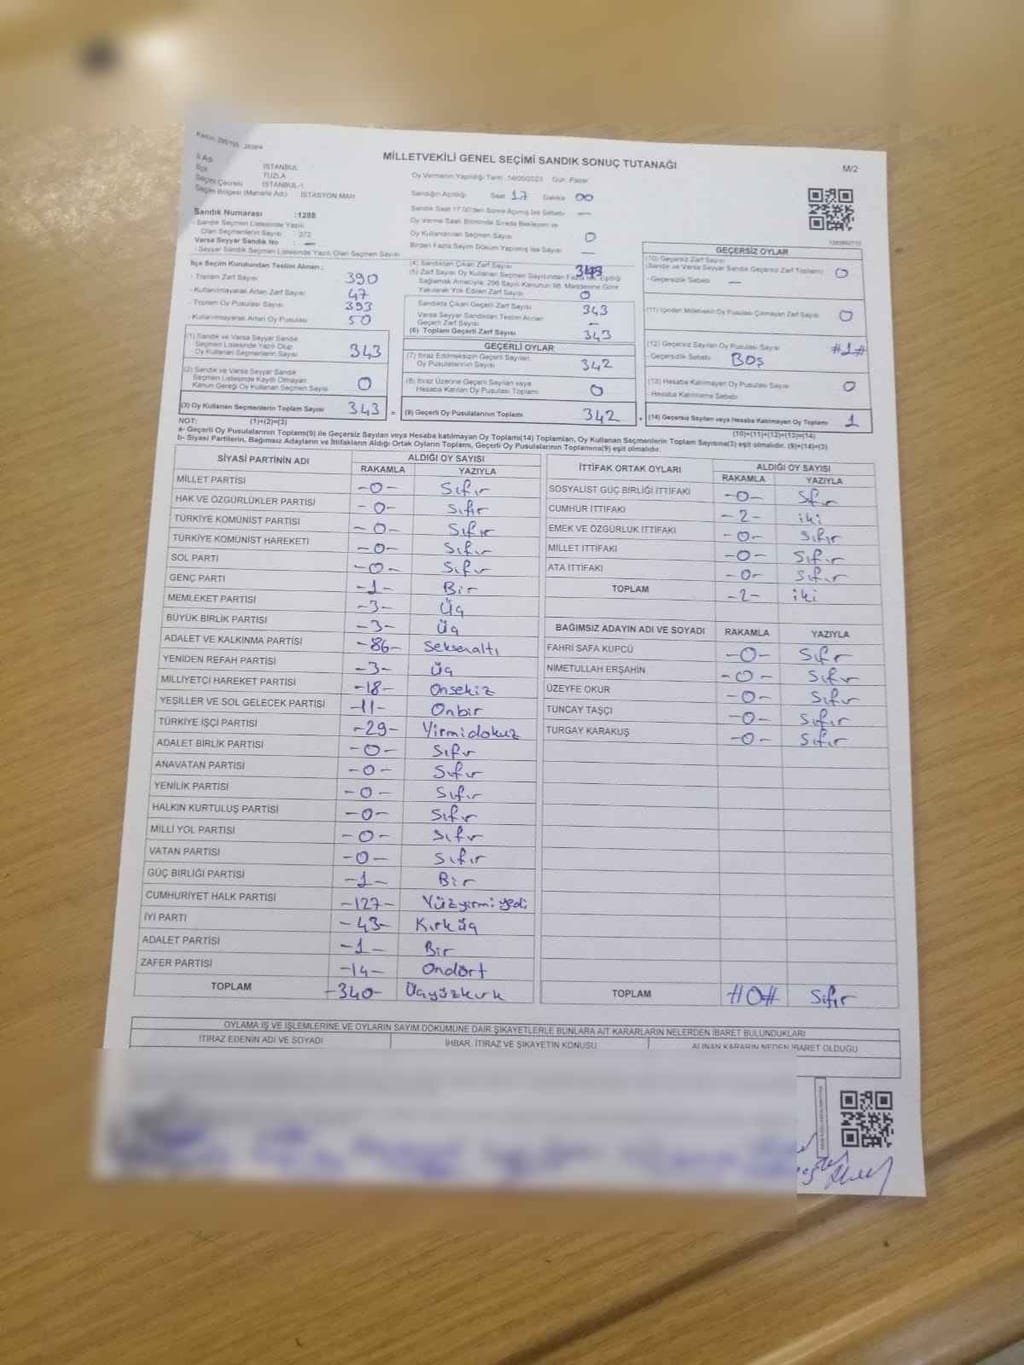 MİLLETVEKİLİ GENEL SEÇİMİ SANDIK SONUÇ TUTANAĞI
M/2
İli Adı İSTANBUL
İlçe TUZLA
Seçim Çevresi İSTANBUL-1
Seçim Bölgesi (Mahalle Adı) İSTASYON MAH
Oy Vermenin Yapıldığı Tarih :14/05/2023 Gün :Pazar
Sandığın Açıldığı Saat 17 Dakika 00
Sandık Numarası :1288
- Sandık Seçmen Listesinde Yazılı
Olan Seçmenlerin Sayısı
Varsa Seyyar Sandık No : —
- Seyyar Sandık Seçmen Listesinde Yazılı Olan Seçmen Sayısı
Sandık Saat 17.00'den Sonra Açılmış İse Sebebi —
Oy Verme Saati Bitiminde Sırada Bekleyen ve
Oy Kullandırılan Seçmen Sayısı 0
Birden Fazla Sayım Döküm Yapılmış İse Sayısı —
İlçe Seçim Kurulundan Teslim Alınan ;
- Toplam Zarf Sayısı 390
- Kullanılmayarak Artan Zarf Sayısı 47
- Toplam Oy Pusulası Sayısı 393
- Kullanılmayarak Artan Oy Pusulası 50
(1) Sandık ve Varsa Seyyar Sandık
Seçmen Listesinde Yazılı Olup
Oy Kullanan Seçmenlerin Sayısı 343
(2) Sandık ve Varsa Seyyar Sandık
Seçmen Listesinde Kayıtlı Olmayan
Kanun Gereği Oy Kullanan Seçmen Sayısı 0
(3) Oy Kullanan Seçmenlerin Toplam Sayısı 343 =
(1)+(2)=(3)
(4) Sandıktan Çıkan Zarf Sayısı 343
(5) Zarf Sayısı Oy Kullanan Seçmen Sayısından Fazla ise, Eşitliği
Sağlamak Amacıyla; 298 Sayılı Kanunun 98. Maddesine Göre
Yakılarak Yok Edilen Zarf Sayısı 0
Sandıkta Çıkan Geçerli Zarf Sayısı 343
Varsa Seyyar Sandıktan Teslim Alınan
Geçerli Zarf Sayısı —
(6) Toplam Geçerli Zarf Sayısı 343
GEÇERLİ OYLAR
(7) İtiraz Edilmeksizin Geçerli Sayılan
Oy Pusulası Sayısı 342
(8) İtiraz Üzerine Geçerli Sayılan veya
Hesaba Katılan Oy Pusulası Toplamı 0
(9) Geçerli Oy Pusulalarının Toplamı 342 +
GEÇERSİZ OYLAR
(10) Geçersiz Zarf Sayısı
(Sandık ve Varsa Seyyar Sandık Geçersiz Zarf Toplamı) 0
- Geçersizlik Sebebi —
(11) İçinden Milletvekili Oy Pusulası Çıkmayan Zarf Sayısı 0
(12) Geçersiz Sayılan Oy Pusulası Sayısı #1#
- Geçersizlik Sebebi BOŞ
(13) Hesaba Katılmayan Oy Pusulası Sayısı 0
- Hesaba Katılmama Sebebi
(14) Geçersiz Sayılan veya Hesaba Katılmayan Oy Toplamı 1
(10)+(11)+(12)+(13)=(14)
NOT:
a- Geçerli Oy Pusulalarının Toplamı(9) ile Geçersiz Sayılan veya Hesaba katılmayan Oy Toplamı(14) Toplamları, Oy Kullanan Seçmenlerin Toplam Sayısına(3) eşit olmalıdır. (9)+(14)=(3)
b- Siyasi Partilerin, Bağımsız Adayların ve İttifakların Aldığı Ortak Oyların Toplamı, Geçerli Oy Pusulalarının Toplamına(9) eşit olmalıdır.
SİYASİ PARTİNİN ADI
ALDIĞI OY SAYISI
RAKAMLA YAZIYLA
MİLLET PARTİSİ -0- Sıfır
HAK VE ÖZGÜRLÜKLER PARTİSİ -0- Sıfır
TÜRKİYE KOMÜNİST PARTİSİ -0- Sıfır
TÜRKİYE KOMÜNİST HAREKETİ -0- Sıfır
SOL PARTİ -0- Sıfır
GENÇ PARTİ -1- Bir
MEMLEKET PARTİSİ -3- Üç
BÜYÜK BİRLİK PARTİSİ -3- Üç
ADALET VE KALKINMA PARTİSİ -86- Seksenaltı
YENİDEN REFAH PARTİSİ -3- Üç
MİLLİYETÇİ HAREKET PARTİSİ -18- Onsekiz
YEŞİLLER VE SOL GELECEK PARTİSİ -11- Onbir
TÜRKİYE İŞÇİ PARTİSİ -29- Yirmidokuz
ADALET BİRLİK PARTİSİ -0- Sıfır
ANAVATAN PARTİSİ -0- Sıfır
YENİLİK PARTİSİ -0- Sıfır
HALKIN KURTULUŞ PARTİSİ -0- Sıfır
MİLLİ YOL PARTİSİ -0- Sıfır
VATAN PARTİSİ -0- Sıfır
GÜÇ BİRLİĞİ PARTİSİ -1- Bir
CUMHURİYET HALK PARTİSİ -127- Yüzyirmi yedi
İYİ PARTİ -43- Kırküç
ADALET PARTİSİ -1- Bir
ZAFER PARTİSİ -14- Ondört
TOPLAM -340- Üçyüzkırk
İTTİFAK ORTAK OYLARI
ALDIĞI OY SAYISI
RAKAMLA YAZIYLA
SOSYALİST GÜÇ BİRLİĞİ İTTİFAKI -0- Sıfır
CUMHUR İTTİFAKI -2- iki
EMEK VE ÖZGÜRLÜK İTTİFAKI -0- Sıfır
MİLLET İTTİFAKI -0- Sıfır
ATA İTTİFAKI -0- Sıfır
TOPLAM -2- iki
BAĞIMSIZ ADAYIN ADI VE SOYADI RAKAMLA YAZIYLA
FAHRİ SAFA KUPCÜ -0- Sıfır
NİMETULLAH ERŞAHİN -0- Sıfır
ÜZEYFE OKUR -0- Sıfır
TUNCAY TAŞÇI -0- Sıfır
TURGAY KARAKUŞ -0- Sıfır
TOPLAM #0# Sıfır
OYLAMA İŞ VE İŞLEMLERİNE VE OYLARIN SAYIM DÖKÜMÜNE DAİR ŞİKAYETLERLE BUNLARA AİT KARARLARIN NELERDEN İBARET BULUNDUKLARI
İTİRAZ EDENİN ADI VE SOYADI
İHBAR, İTİRAZ VE ŞİKAYETİN KONUSU
ALINAN KARARIN NEDEN İBARET OLDUĞU